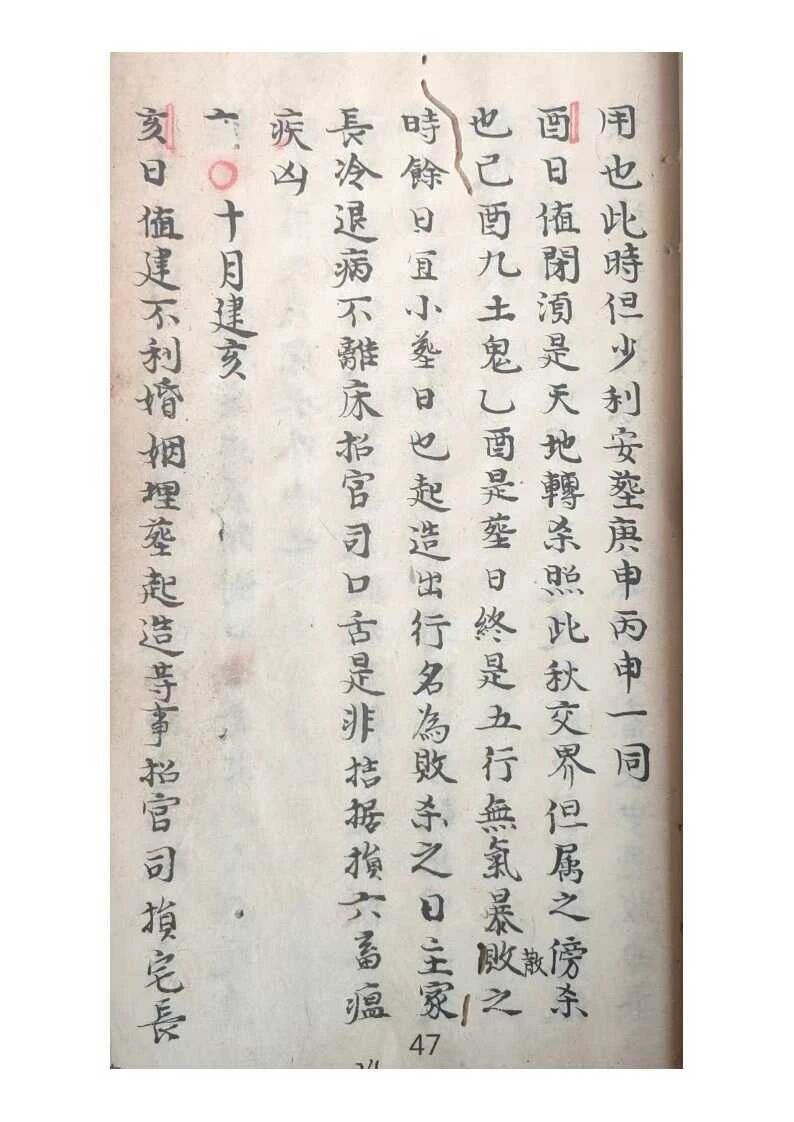 用也此時但少利安塟庚申丙申一同
酉日值閉湏是天地轉杀照此秋交界但属之傍杀
也己酉九土鬼乙酉是塟日終是五行無氣暴敗之
散
時餘日宜小塟日也起造出行名為敗杀之日主家
長冷退病不離床招官司口舌是非拮据損六畜瘟
疾凶
十月建亥
亥日值建不利婚姻埋塟起造等事招官司損宅長
47